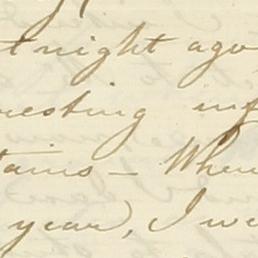 t night ago
resting inf
tains – When
year), I we